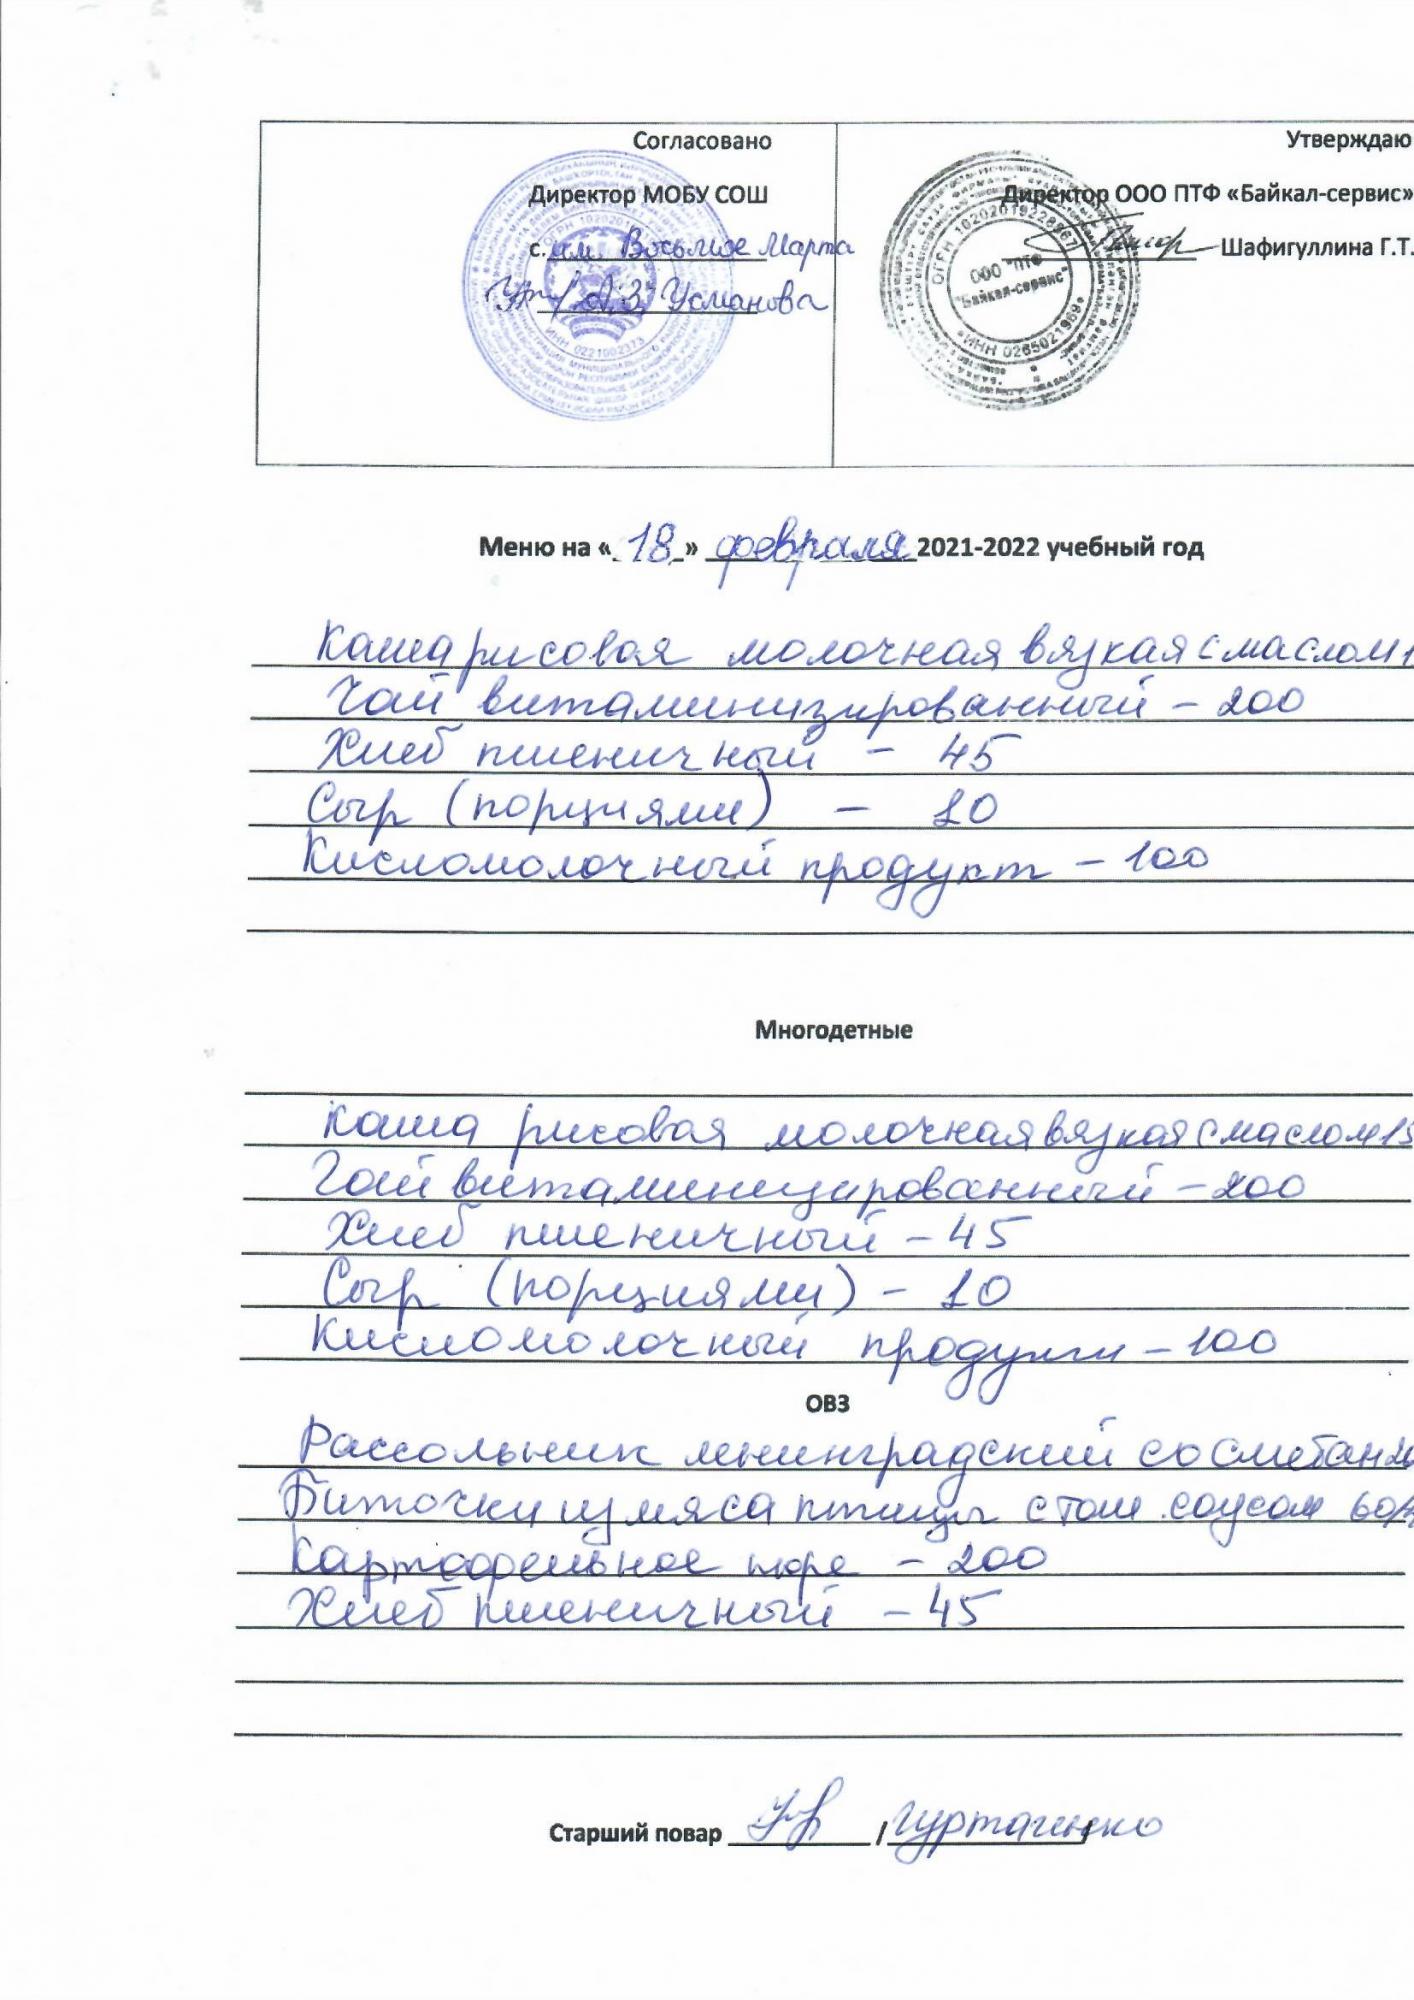 Согласовано
Директор МОБУ СОШ
с. им. Восьмое Марта
А.З. Усманова
Утверждаю
Директор ООО ПТФ «Байкал-сервис»
Шафигуллина Г.Т.
ОГРН 1020201
ИНН 0221002373
ООО "ПТФ
"Байкал-сервис"
ИНН 0265021969
Меню на «18» февраля 2021-2022 учебный год
Каша рисовая молочная вязкая с маслом 1
Чай витаминизированный – 200
Хлеб пшеничный – 45
Сыр (порциями) – 10
Кисломолочный продукт – 100
Многодетные
Каша рисовая молочная вязкая с маслом 15
Чай витаминизированный – 200
Хлеб пшеничный – 45
Сыр (порциями) – 10
Кисломолочный продукт – 100
ОВЗ
Рассольник ленинградский со сметан
Биточки из мяса птицы с том. соусом 60/
Картофельное пюре – 200
Хлеб пшеничный – 45
Старший повар / /